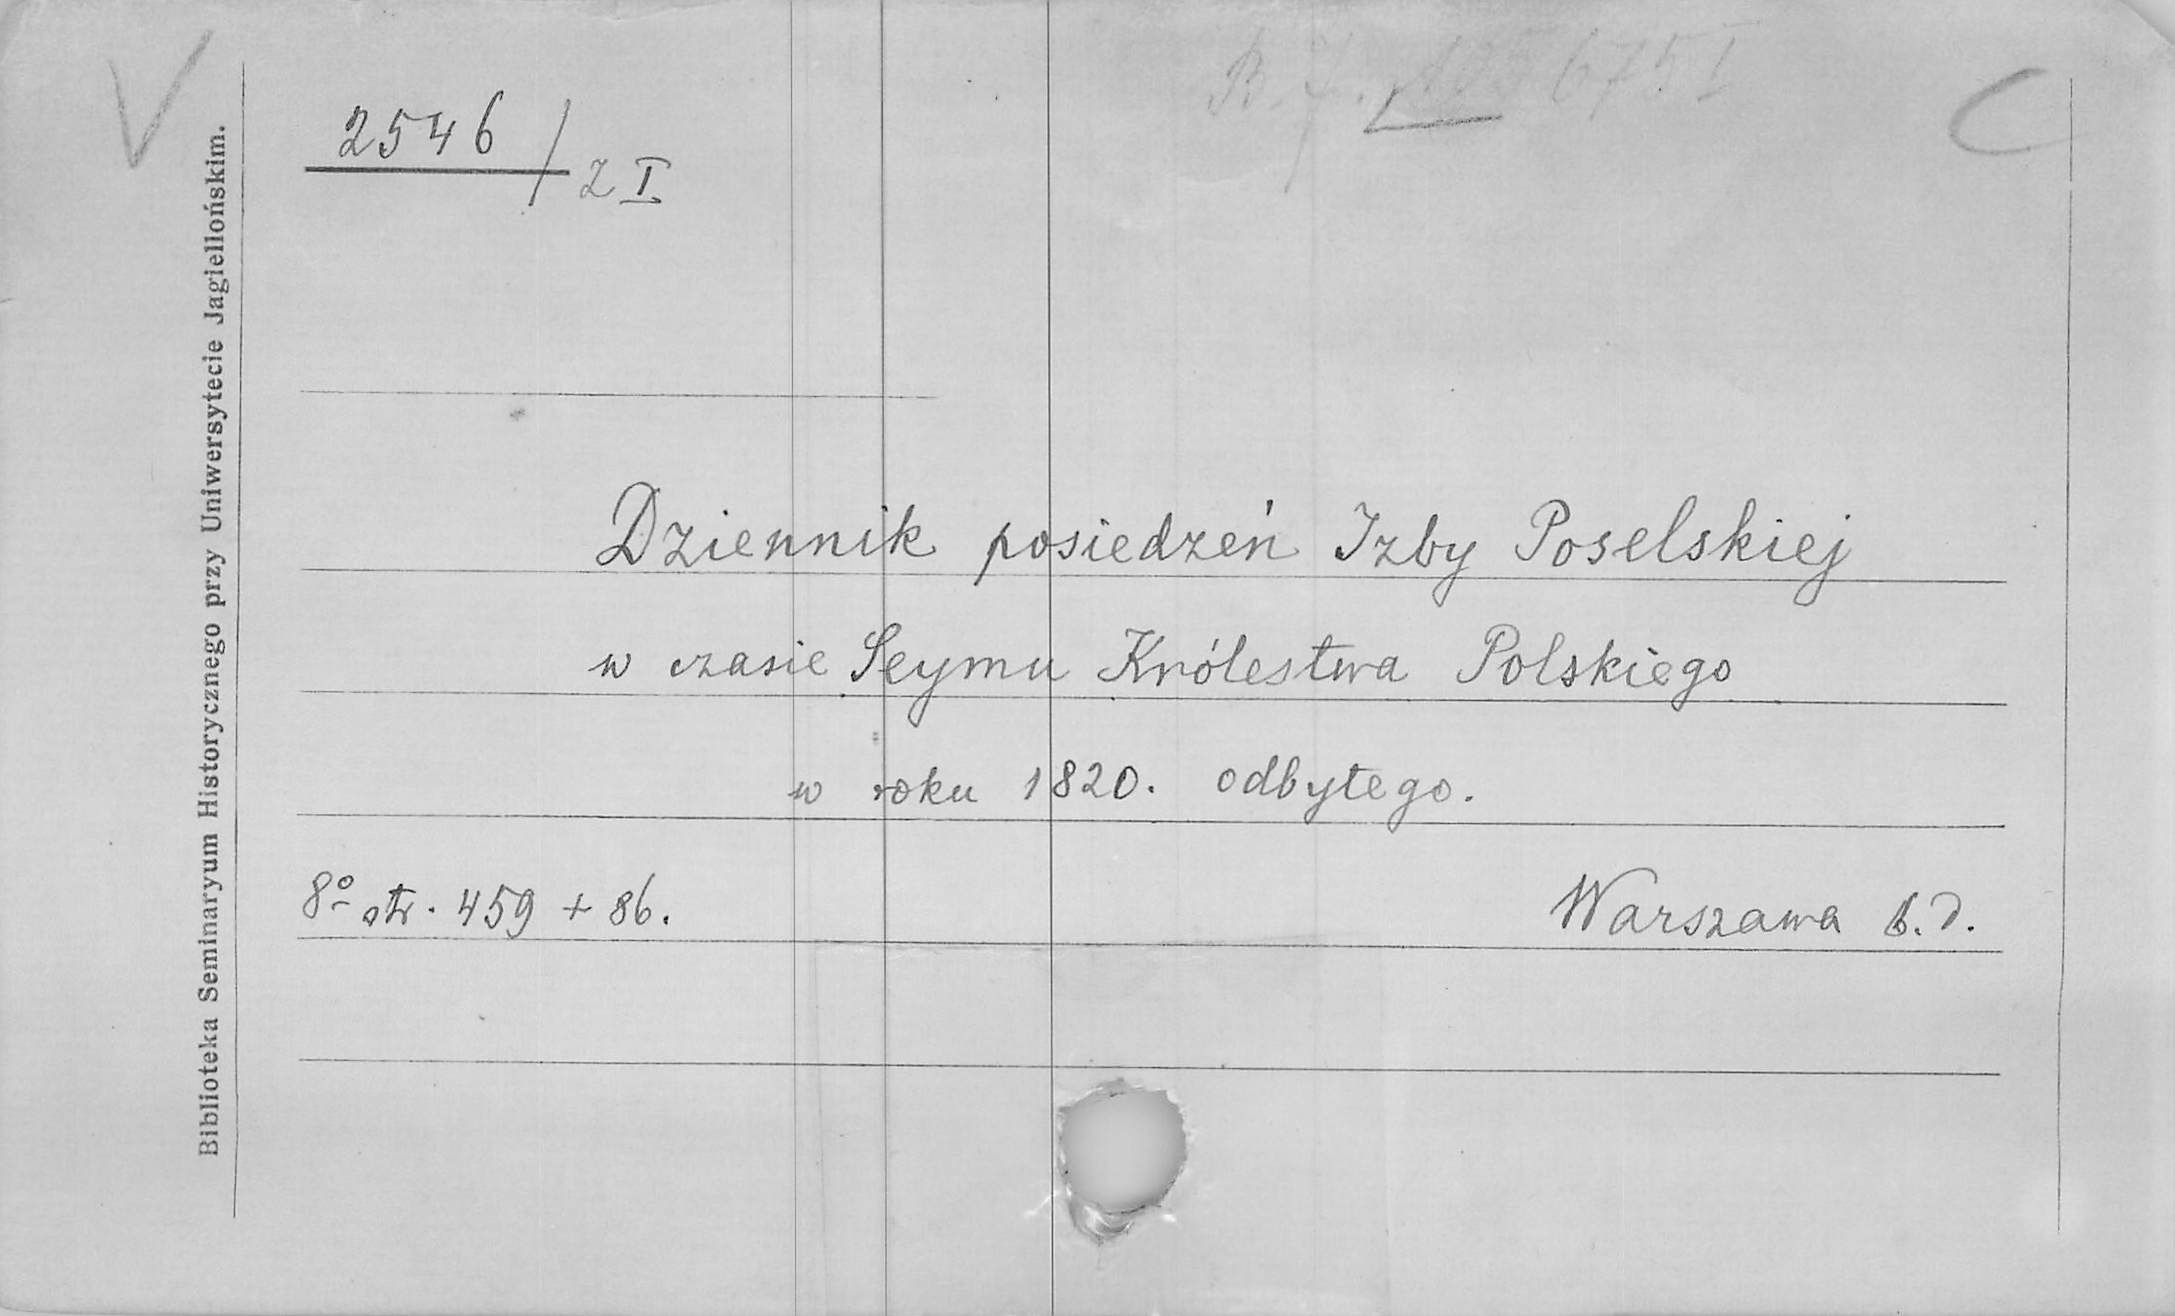 2546 / 2 I
Dziennik posiedzeń Izby Poselskiej
w czasie Seymu Królestwa Polskiego
w roku 1820. odbytego.
8º str. 459 + 86.
Warszawa b.d.
Biblioteka Seminaryum Historycznego przy Uniwersytecie Jagiellońskim.